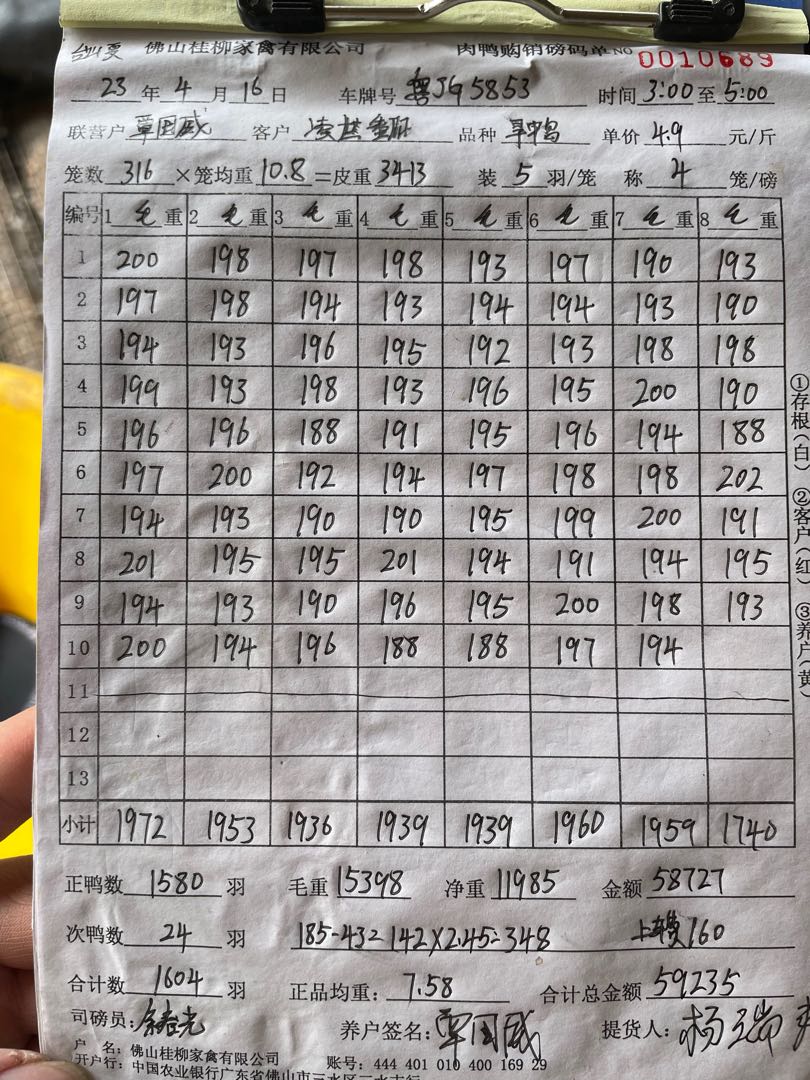 佛山桂柳家禽有限公司 肉鸭购销磅码单 NO 0010689
23 年 4 月 16 日 车牌号 粤JG5853 时间 3:00 至 5:00
联营户 覃国威 客户 品种 单价 4.9 元/斤
笼数 316 ×笼均重 10.8 =皮重 3413 装 5 羽/笼 称 4 笼/磅
编号 1 毛重 2 毛重 3 毛重 4 毛重 5 毛重 6 毛重 7 毛重 8 毛重
1 200 198 197 198 193 197 190 193
2 197 198 194 193 194 194 193 190
3 194 193 196 195 192 193 198 198
4 199 193 198 193 196 195 200 190
5 196 196 188 191 195 196 194 188
6 197 200 192 194 197 198 198 202
7 194 193 190 190 195 199 200 191
8 201 195 195 201 194 191 194 195
9 194 193 190 196 195 200 198 193
10 200 194 196 188 188 197 194
11
12
13
小计 1972 1953 1936 1939 1939 1960 1959 1740
正鸭数 1580 羽 毛重 15398 净重 11985 金额 58727
次鸭数 24 羽 185-43=142×2.45=348 上车费160
合计数 1604 羽 正品均重: 7.58 合计总金额 59235
司磅员: 养户签名: 覃国威 提货人:
户 名: 佛山桂柳家禽有限公司
开户行: 中国农业银行广东省佛山市三水区三水支行 账号: 444 401 010 400 169 29
①存根(白) ②客户(红) ③养户(黄)